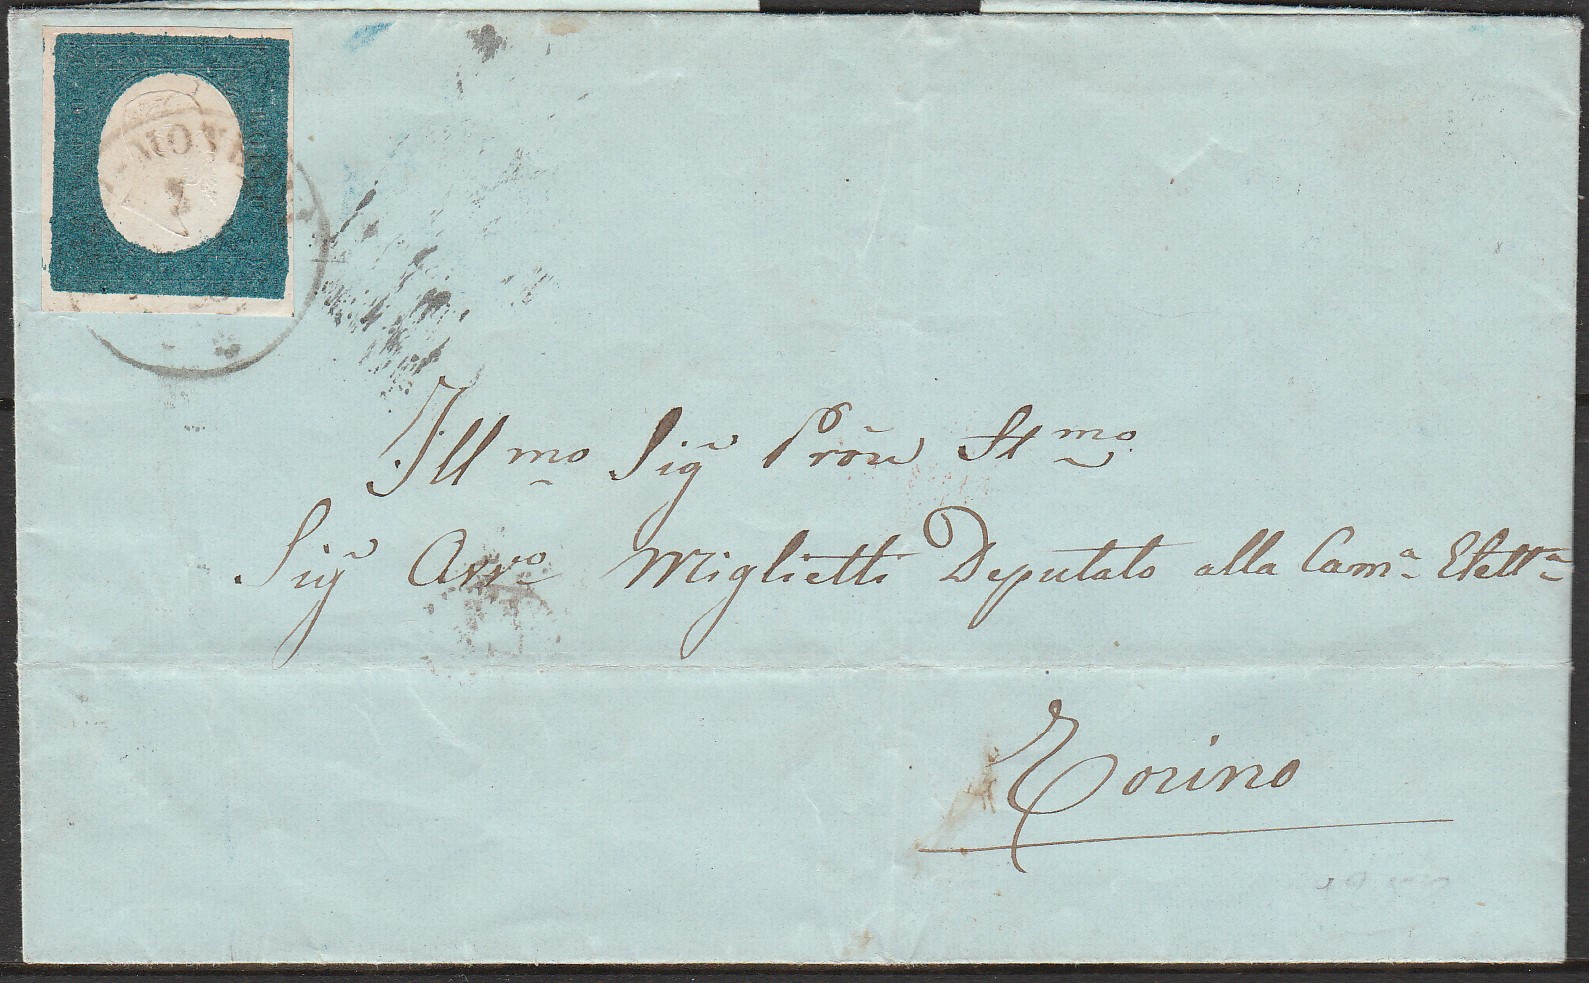 Ill.mo Sig.r Prõn St.mo
Sig.r Avv.o Miglietti Deputato alla Cam.a Elett.a
Torino